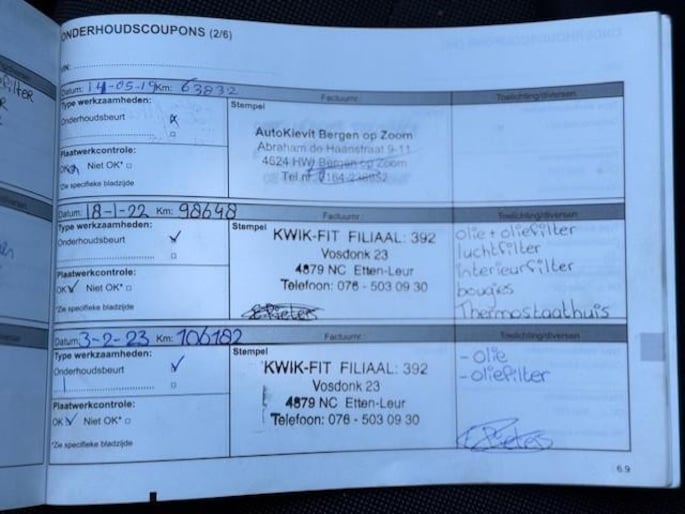 ONDERHOUDSCOUPONS (2/6)
Datum: 14-05-19 Km: 63832
Type werkzaamheden:
Onderhoudsbeurt
Plaatwerkcontrole:
OK Niet OK*
*Zie specifieke bladzijde
Stempel
Factuurnr.:
AutoKievit Bergen op Zoom
Abraham de Haanstraat 9-11
4624 HW Bergen op Zoom
Tel.nr.
Toelichting/diversen
Datum: 18-1-22 Km: 98648
Type werkzaamheden:
Onderhoudsbeurt
Plaatwerkcontrole:
OK Niet OK*
*Zie specifieke bladzijde
Stempel
Factuurnr.:
KWIK-FIT FILIAAL: 392
Vosdonk 23
4879 NC Etten-Leur
Telefoon: 076 - 503 09 30
Toelichting/diversen
olie + oliefilter
luchtfilter
interieurfilter
bougies
Thermostaathuis
Datum: 3-2-23 Km: 106182
Type werkzaamheden:
Onderhoudsbeurt
Plaatwerkcontrole:
OK Niet OK*
*Zie specifieke bladzijde
Stempel
Factuurnr.:
KWIK-FIT FILIAAL: 392
Vosdonk 23
4879 NC Etten-Leur
Telefoon: 076 - 503 09 30
Toelichting/diversen
- olie
- oliefilter
6.9